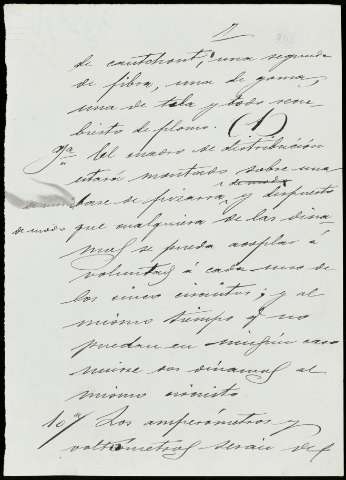 7
de cautchout; una segunda
de fibra, una de goma,
una de tela y todo recu
bierto de plomo. (1)
9ª El cuadro de distribución
estará montado sobre una
base de pizarra, y dispuesto
de modo que cualquiera de las dina-
mos se pueda acoplar á
voluntad á cada uno de
los cinco circuitos; y al
mismo tiempo q. no
puedan en ningún caso
unirse dos dinamos al
mismo circuito
10ª Los amperómetros y
voltometros serán del